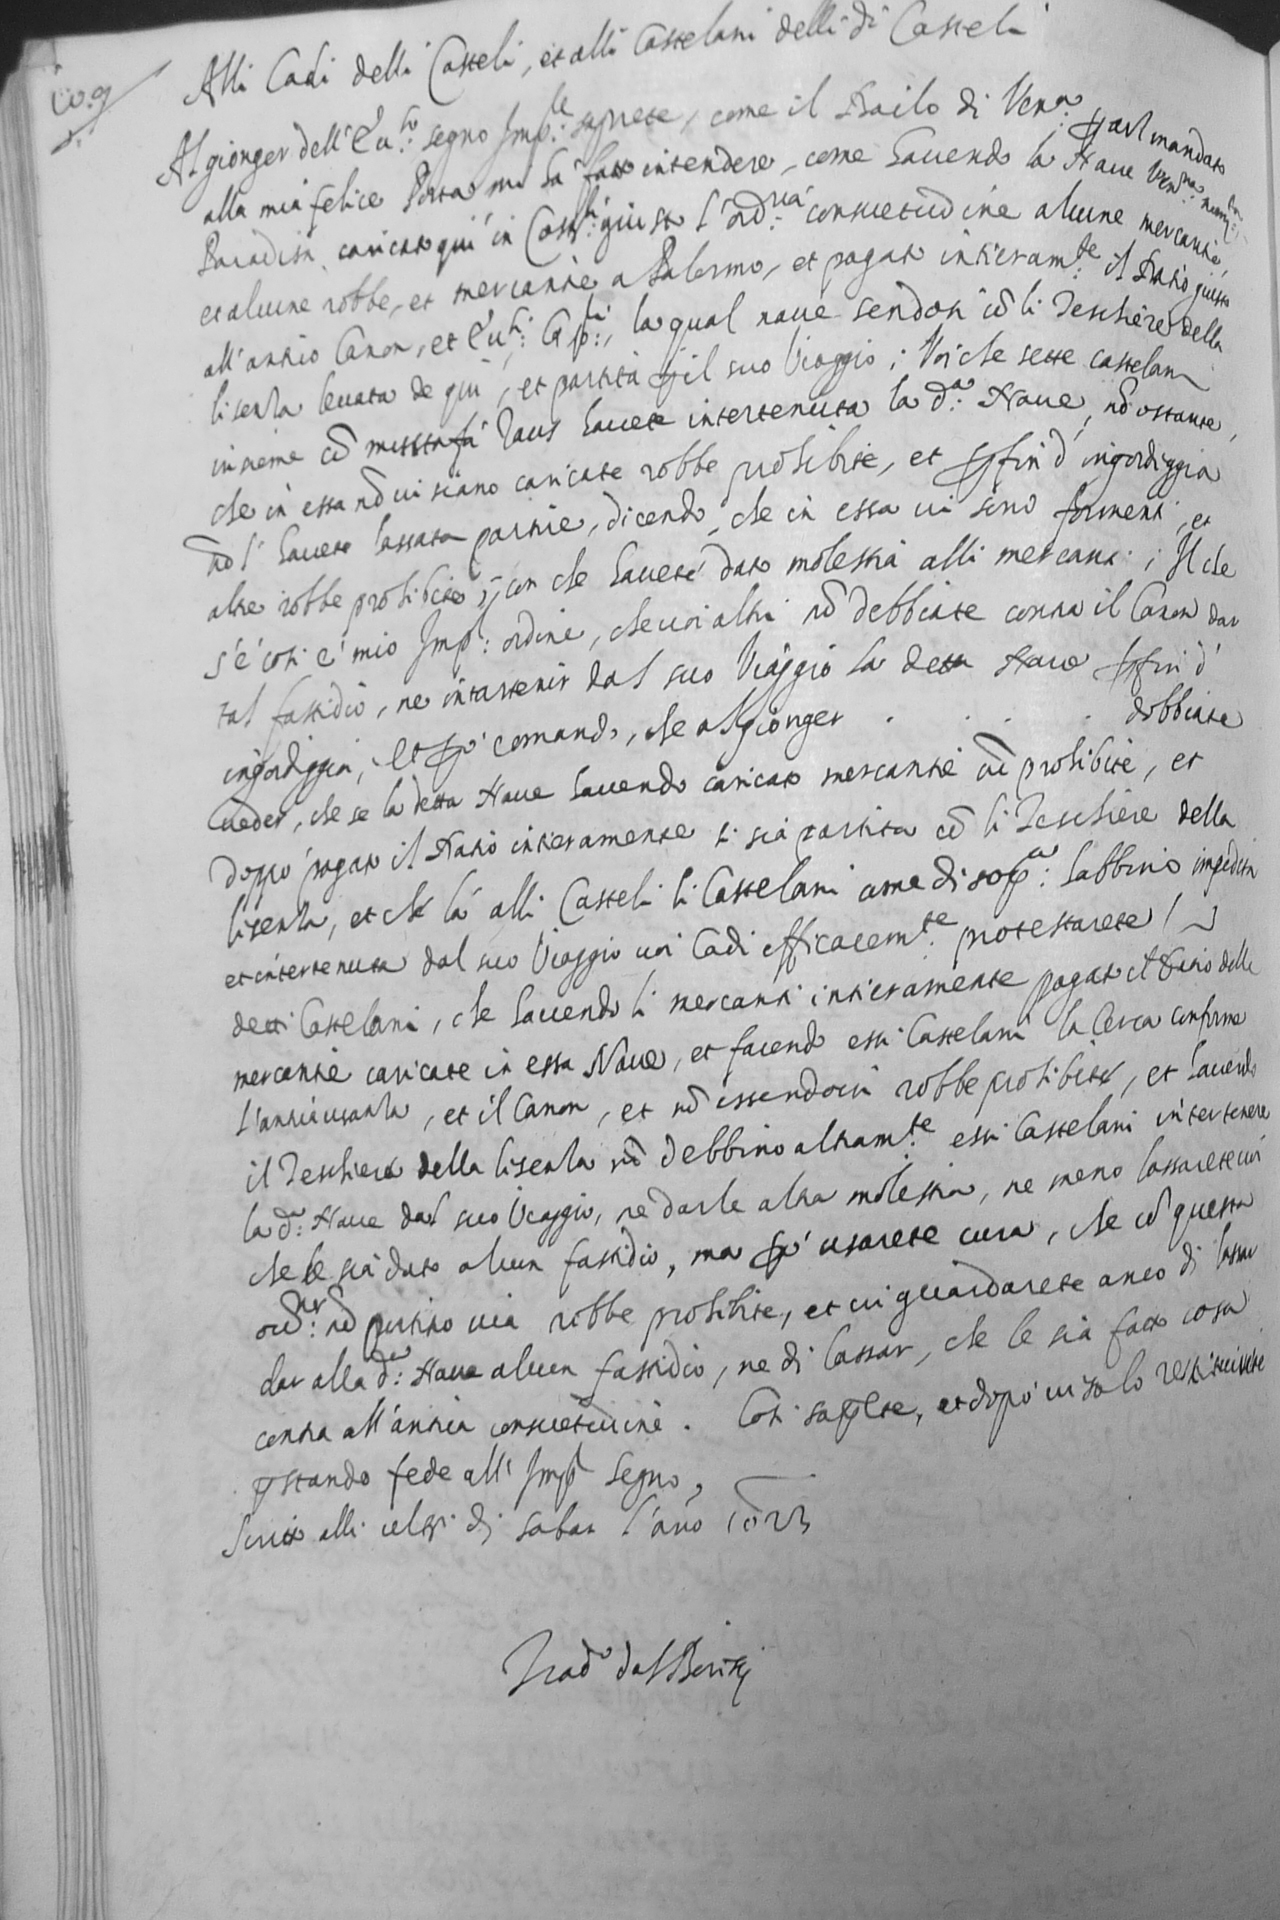 Alli Cadi delli Casteli, et alli Castelani delli dì Casteli
Al gionger dell'Ecc.º segno Imp.le saprete, come il Bailo di Ven.a p arl mandato
alla mia felice Porta mi hà fatto intendere, come havendo la Nave Ven.na
Paradisa caricato quì in Cost.li giusto l'ord.ria consuetudine alcune mercantie,
et alcune robbe, et mercantie a Palermo, et pagato intieram.te il Datio giusto
all'antico Canon, et Ecc.ti Cap.li, la qual nave sendosi cō li Teschiere della
lisenza levata de quì, et partita p il suo Viaggio; Voi che sete castelani
insieme cō musstafà Zaus havete intertenuta la d.a Nave, nō ostante,
che in essa nō vi siano caricate robbe prohibite, et p fin d'ingordiggia
nō l'havete lassata partire, dicendo, che in essa vi sono formenti, et
altre robbe prohibite, con che havete dato molestia alli mercanti; Il che
s'è così è mio Imp.l ordine, che voi altri nō debbiate contra il Canon dar
tal fastidio, ne intertenir dal suo Viaggio la detta Nave p fin d'
ingordiggia, et p.ò comando, che al gionger . . . . dobbiate
veder, che se la detta Nave havendo caricato mercantie nō prohibite, et
doppò pagato il Datio intieramente si sia partita cō li Teschiere della
lisenza, et che là alli Casteli li Castelani come di sop.a habbino impedita
et intertenuta dal suo Viaggio voi Cadi efficacem.te protestarete /
detti Castelani, che havendo li mercanti intieramente pagato il Datio delle
mercantie caricate in essa Nave, et facendo essi Castelani la Cerca conforme
l'antica usanza, et il Canon, et nō essendovi robbe prohibite, et havendo
il Teschiere della lisenza nō debbino altram.te essi Castelani intertenere
la d.a Nave dal suo Viaggio, ne darle altra molestia, ne meno lassarete voi
che le sia dato alcun fastidio, ma p.ò usarete cura, che cō questa
nō portino via robbe prohibite, et vi guardarete anco di lassar
dar alla d.a Nave alcun fastidio, ne di lassar, che le sia fatto cosa
contra all'antica consuetudine. Così saprete, et dopò visto lo restituirete
pstando fede all'Imp.l segno,
Scritto alli ultimi di saban l'ano 1023
Trad.o dal Borisi